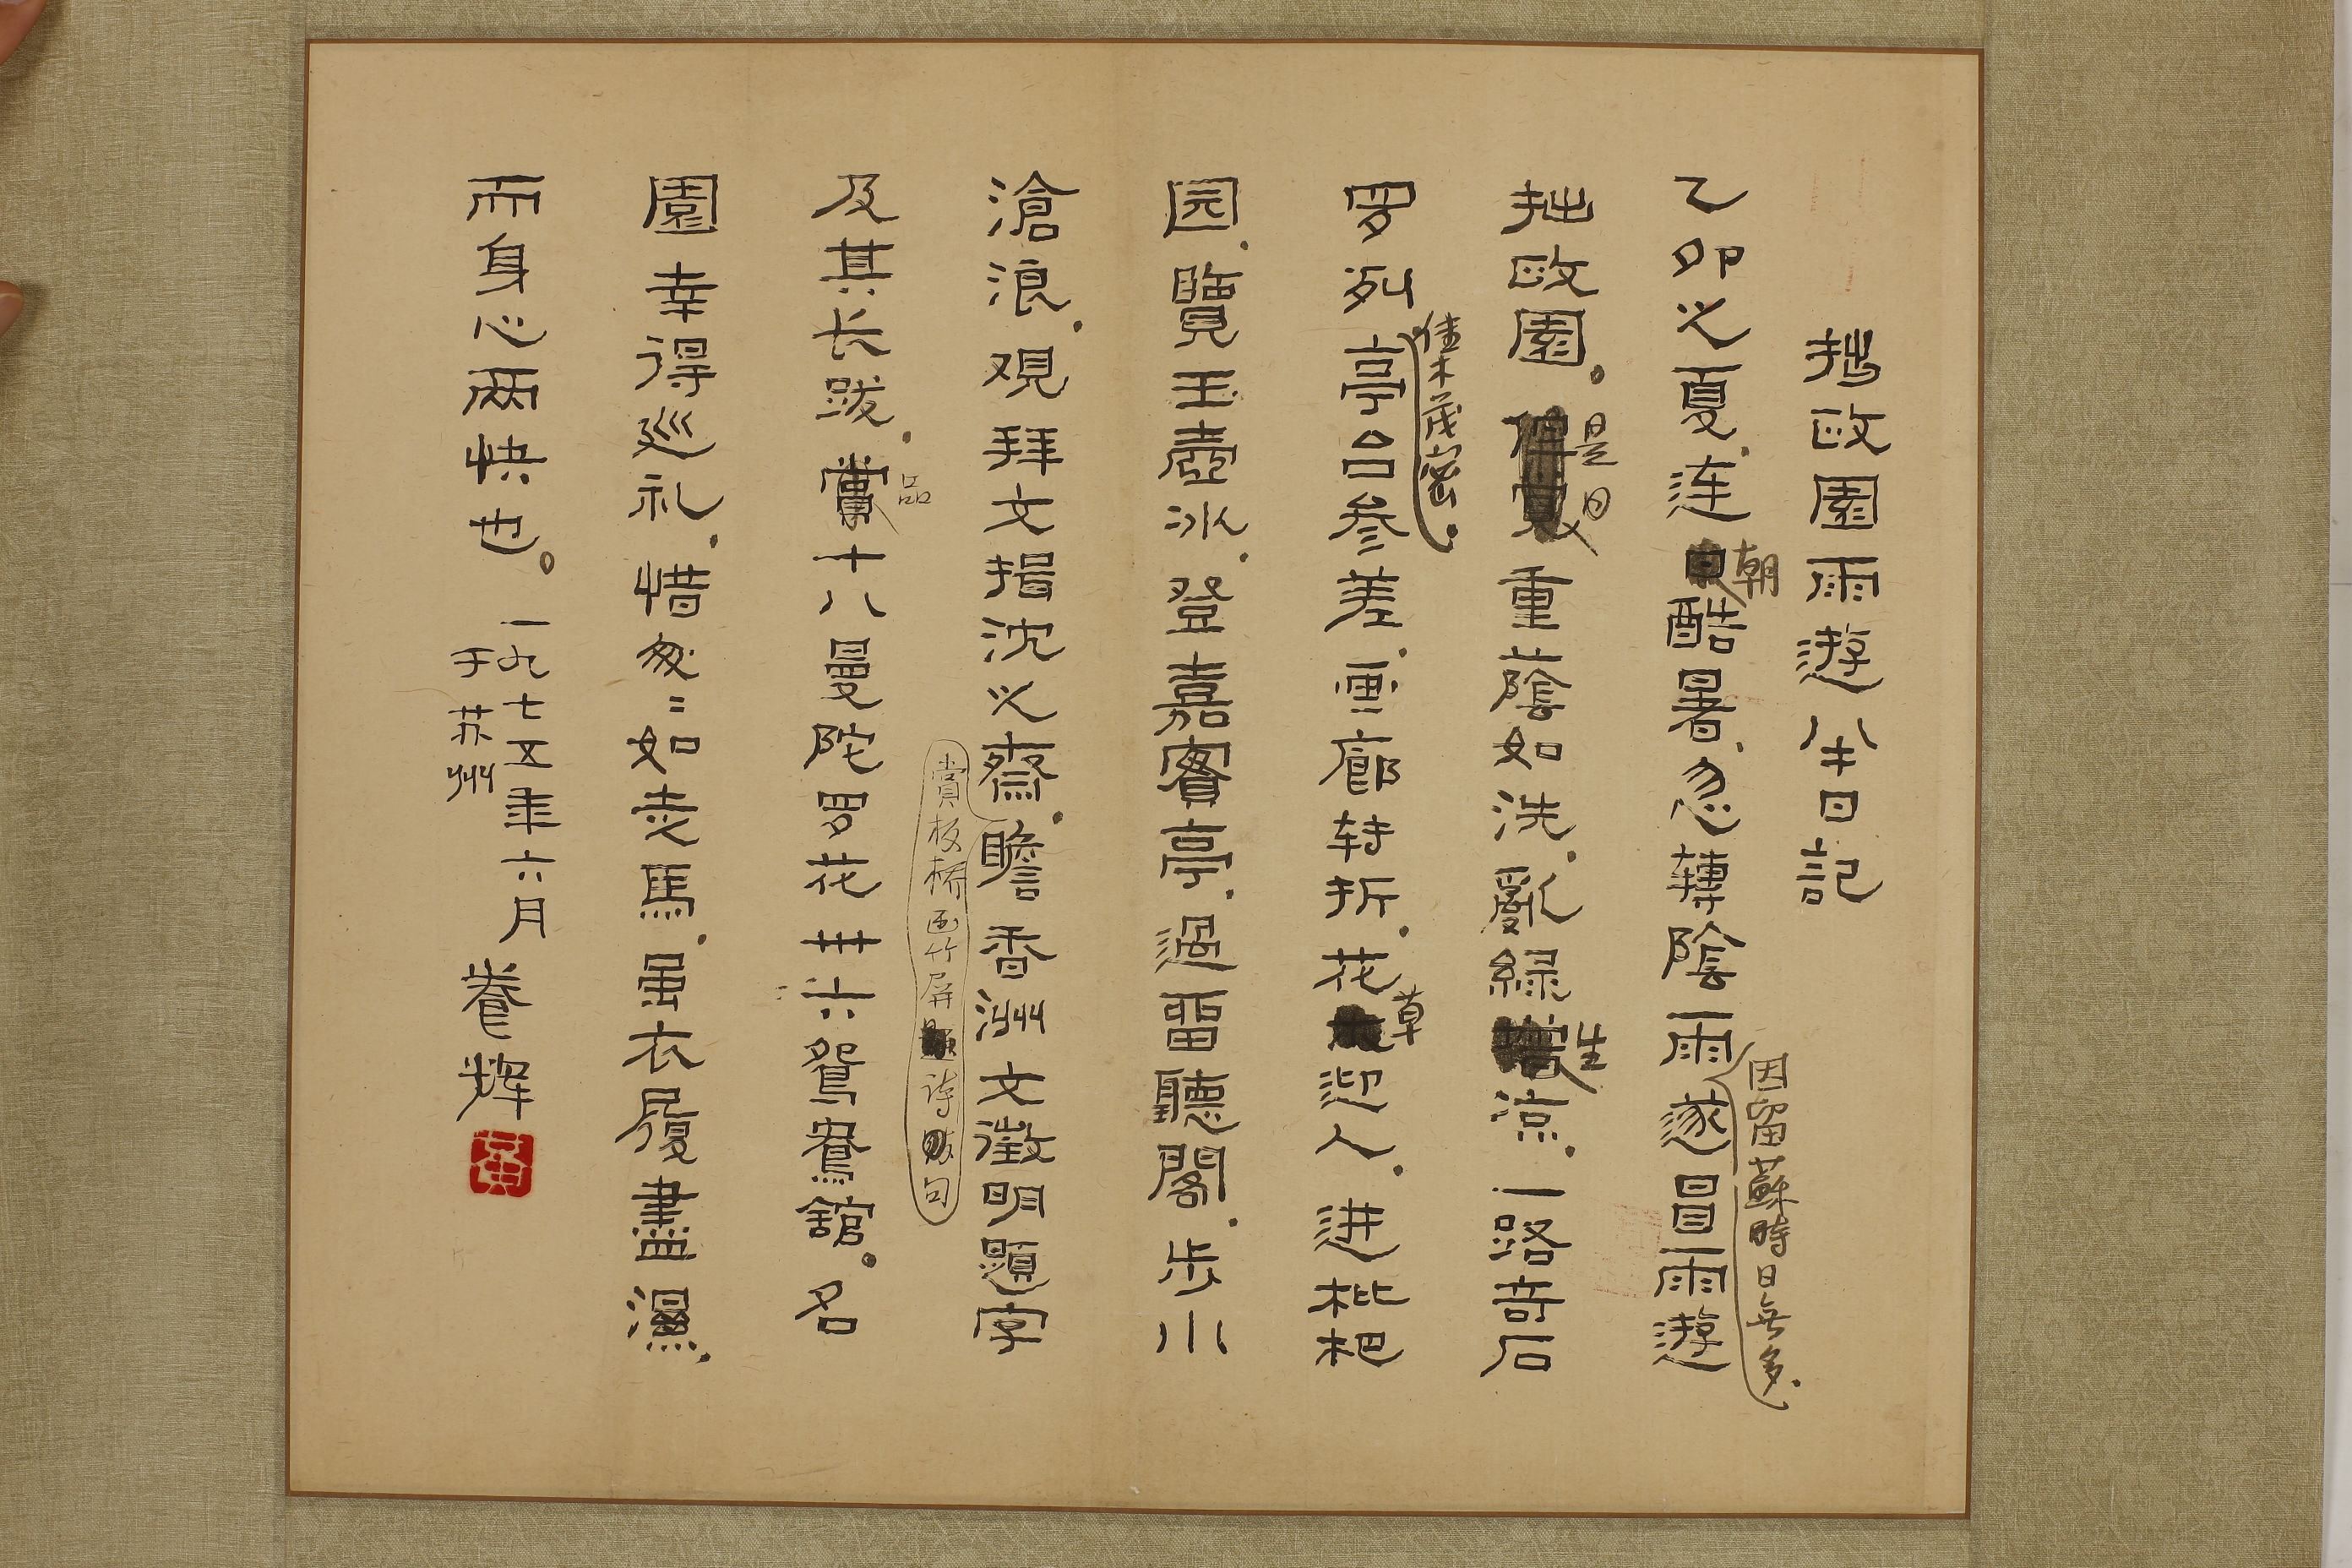 拙政園雨遊半日記
乙卯之夏.连朝酷暑.忽轉陰雨因留蘇時日無多.遂冒雨遊
拙政園。是日重蔭如洗.亂綠生涼.一路奇石
罗列佳木茂密.亭台参差.画廊转折.花草迎人.进枇杷
园.覽玉壺冰.登嘉賓亭.過留聽閣.步小
滄浪.观拜文揖沈之齋.賞板橋画竹屏詩句瞻香洲文徵明題字
及其长跋.品十八曼陀罗花卅六鴛鴦館。名
園幸得巡礼.惜匆=如走馬.虽衣履盡濕.
而身心两快也。一九七五年六月
于苏州
養辉